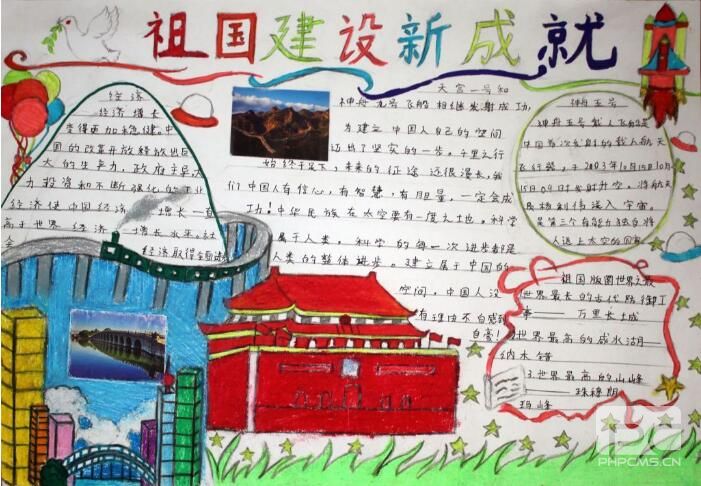 祖国建设新成就
经济
经济增长
变得更加稳健。中
国的改革开放释放出巨
大的生产力，政府主
力投资和不断强化的工业
经济使中国经济增长一直
高于世界经济增长水平。社
会经济取得全面
天宫一号和
神舟九号飞船相继发射成功,
为建立中国人自己的空间
迈出了坚实的一步。千里之行
始终于足下，未来的征途还很漫长，我
们中国人有信心，有智慧，有胆量，一定会成
功！中华民族在太空要有一度之地。科学
属于人类。科学的每一次进步都是
人类的整体进步。建立属于中国的
空间，中国人没
有理由不自感到
自豪！
神舟五号
神舟五号载人飞船是
中国首次发射的载人航天
飞行器，于2003年10月15日10月
15日09时发射升空，将航天
员杨利伟送入宇宙。
是第三个有能力独自将
人送上太空的国家
祖国版图世界之最
世界最长的古代防御工
事——万里长城
世界最高的咸水湖——
纳木错
3.世界最高的山峰
——珠穆朗
玛峰
PHPCMS.CN